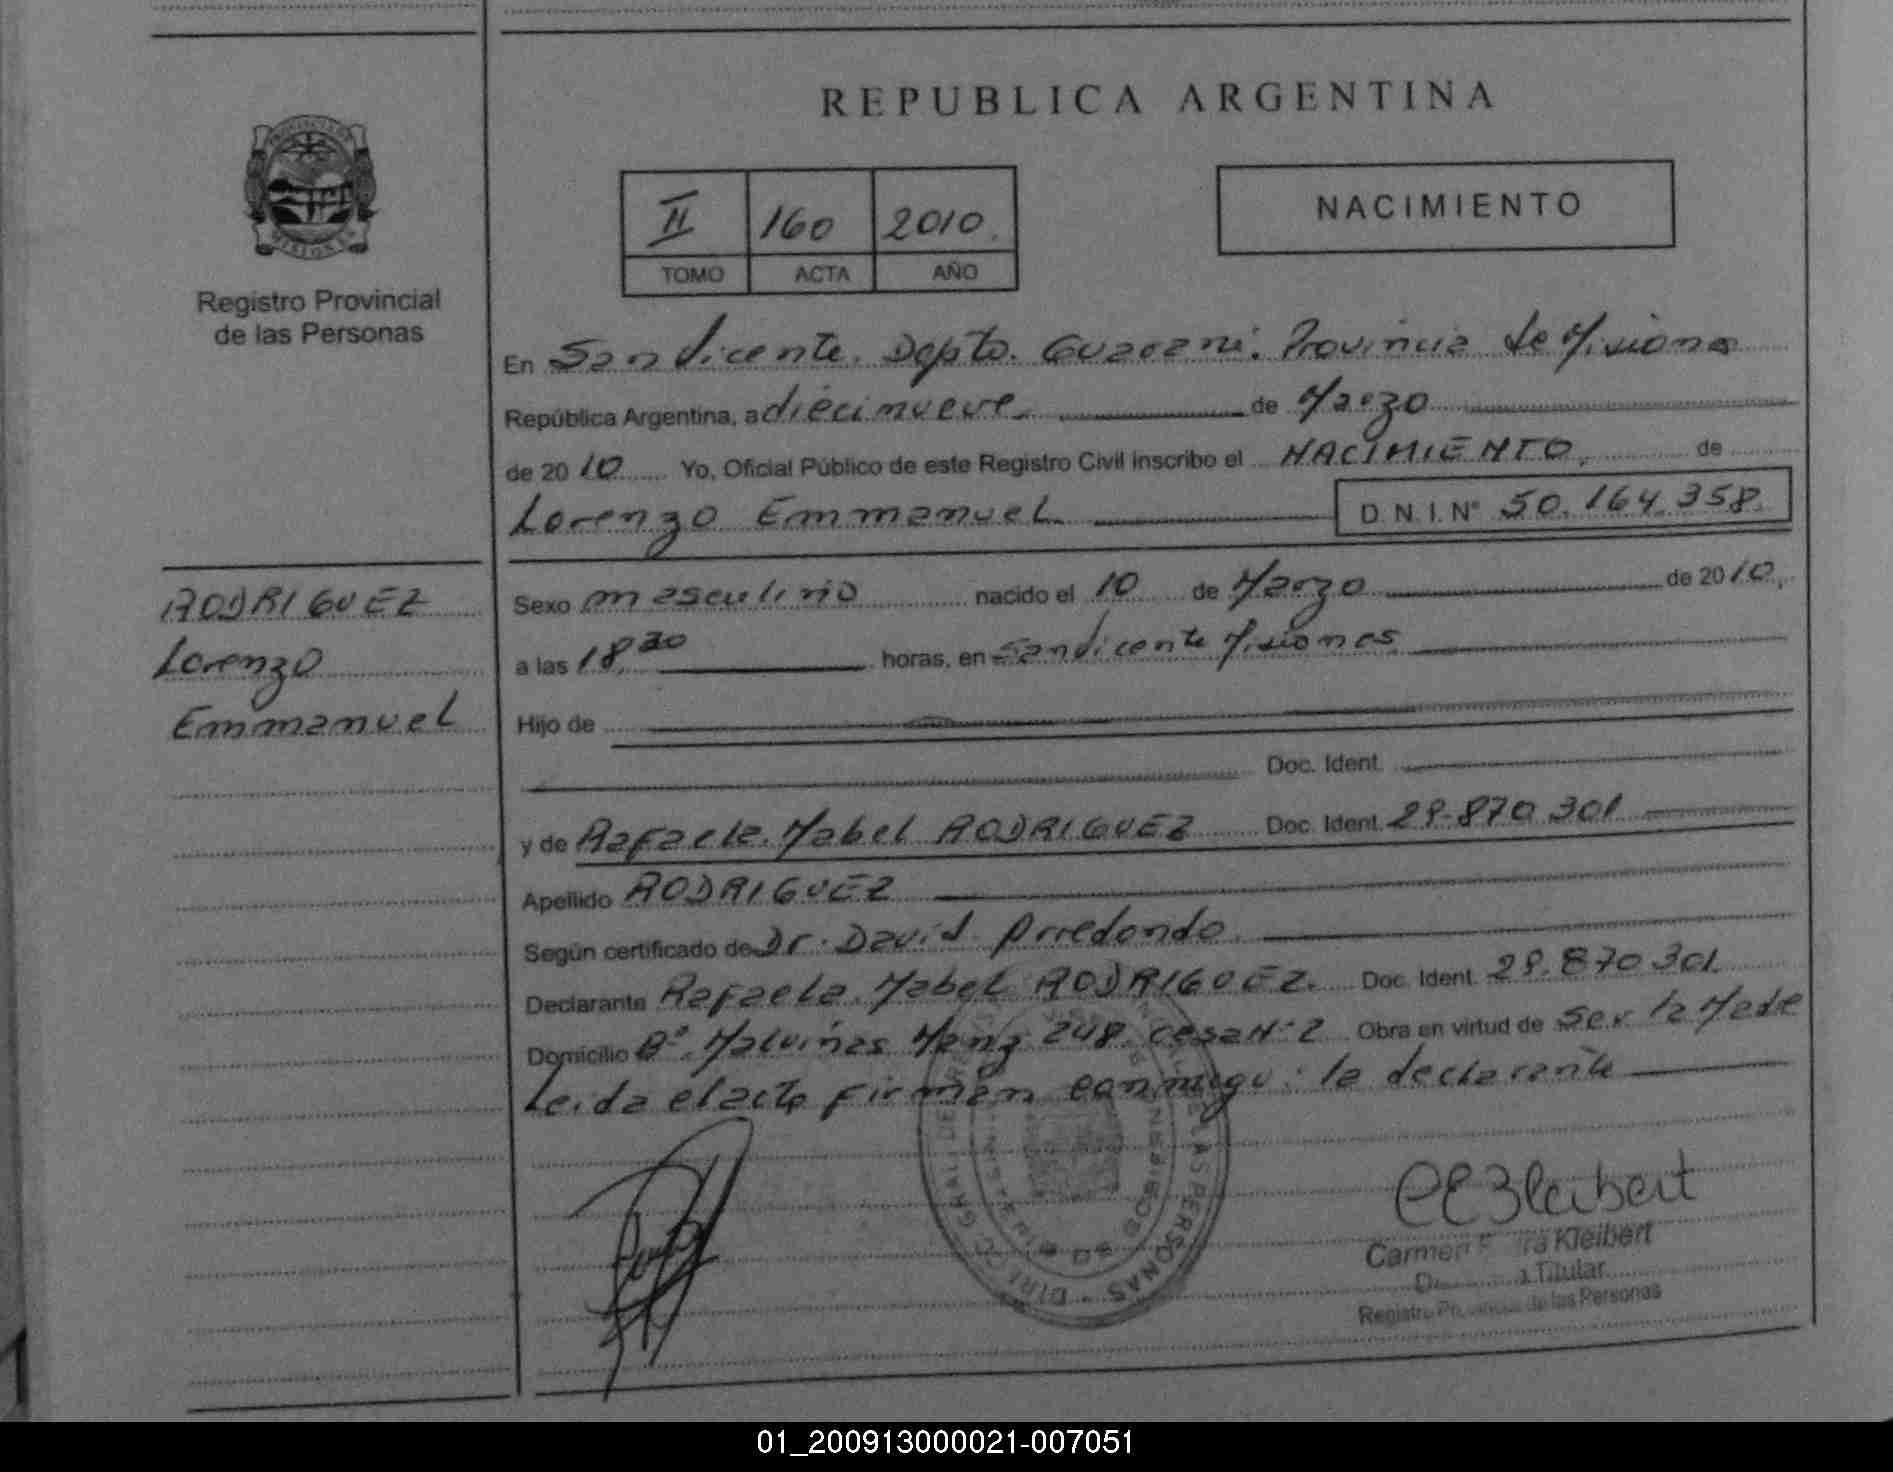 REPUBLICA ARGENTINA
PROVINCIA DE
MISIONES
Registro Provincial
de las Personas
II 160 2010.
TOMO ACTA AÑO
NACIMIENTO
En San Vicente. Depto. Guarani. Provincia de Misiones
República Argentina, a diecinueve de Marzo
de 2010 Yo, Oficial Público de este Registro Civil inscribo el NACIMIENTO. de
Lorenzo Emmanuel D.N.I. N° 50.164.358.
RODRIGUEZ
Lorenzo
Emmanuel
Sexo masculino nacido el 10 de Marzo de 2010,
a las horas, en San Vicente Misiones
Hijo de
Doc. Ident.
y de Rafaela Mabel RODRIGUEZ Doc. Ident. 29.870 301
Apellido RODRIGUEZ
Según certificado de Dr. David Arredondo
Declarante Rafaela Mabel RODRIGUEZ. Doc. Ident. 29.870 301
Domicilio B° Malvinas Manz 248. casa N° 2 Obra en virtud de Ser la Madre
Leida el acta firman conmigo: la declarante
LAS PERSONAS - DIREC. GRAL. DE
Carmen Kleibert
Titular
Registro Provincial de las Personas
01_200913000021-007051